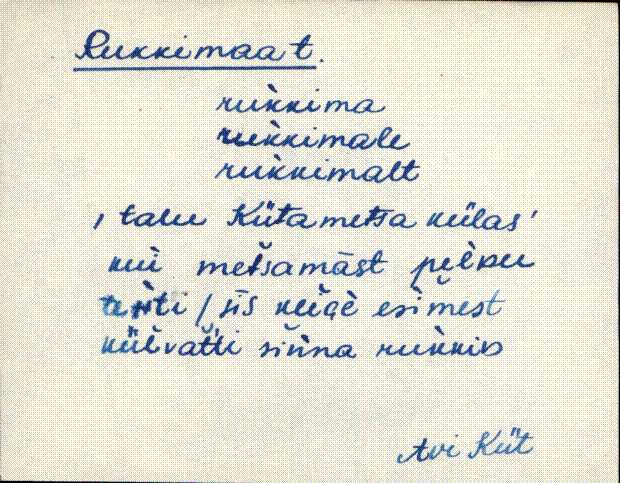 Rukkimaa t.
rukkima
rukkimale
rukkimalt
, talu Kütametsa külas'
kui metsamāst
tèiti / śīs keige esimest
külvatti śinna rukkid
Avi Küt